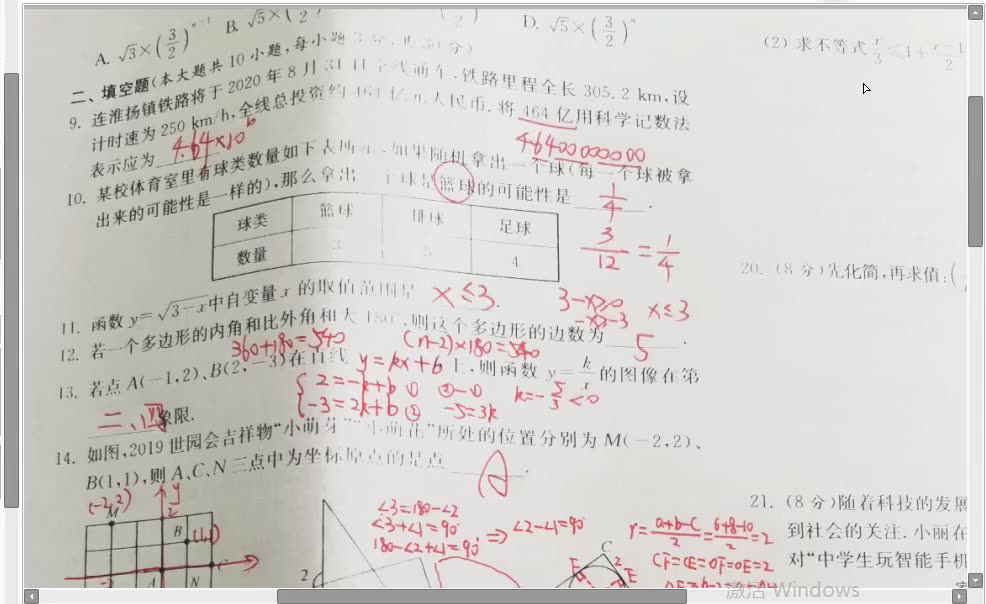 A. √3×(3/2)^(n-1) B. √5×( D. √5×(3/2)^n
二、填空题(本大题共10小题,每小题3分,共30分)
9. 连淮扬镇铁路将于2020年8月31日全线通车,铁路里程全长305.2 km,设
计时速为250 km/h,全线总投资约464亿元人民币.将464亿用科学记数法
表示应为 4.64×10
46400000000
10. 某校体育室里有球类数量如下表所示,如果随机拿出一个球(每一个球被拿
出来的可能性是一样的),那么拿出一个球是篮球的可能性是 1/4 .
球类 篮球 排球 足球
数量 3 5 4
3/12=1/4
11. 函数y=√3-x中自变量x的取值范围是 x≤3.
3-x≥0 x≤3
-x≥-3
12. 若一个多边形的内角和比外角和大180°,则这个多边形的边数为 5 .
360+180=540 (n-2)×180=540
13. 若点A(-1,2)、B(2,-3)在直线y=kx+b上,则函数y=k/x的图像在第
二、四象限.
{2=-k+b ① ②-① k=-5/3<0
-3=2k+b ② -5=3k
14. 如图,2019世园会吉祥物“小萌芽”“小萌花”所处的位置分别为M(-2,2)、
B(1,1),则A、C、N三点中为坐标原点的是点 A .
(-2,2) y
M 2
B (1,1)
-2 A N
2
∠3=180-∠2
∠3+∠1=90°
180-∠2+∠1=90°
⇒∠2-∠1=90°
r=(a+b-c)/2=(6+8-10)/2=2
CF=CE=OF=OE=2
C
F 2 E
(2) 求不等式
20. (8分)先化简,再求值:(
21. (8分)随着科技的发展
到社会的关注.小丽在
对“中学生玩智能手机
激活 Windows